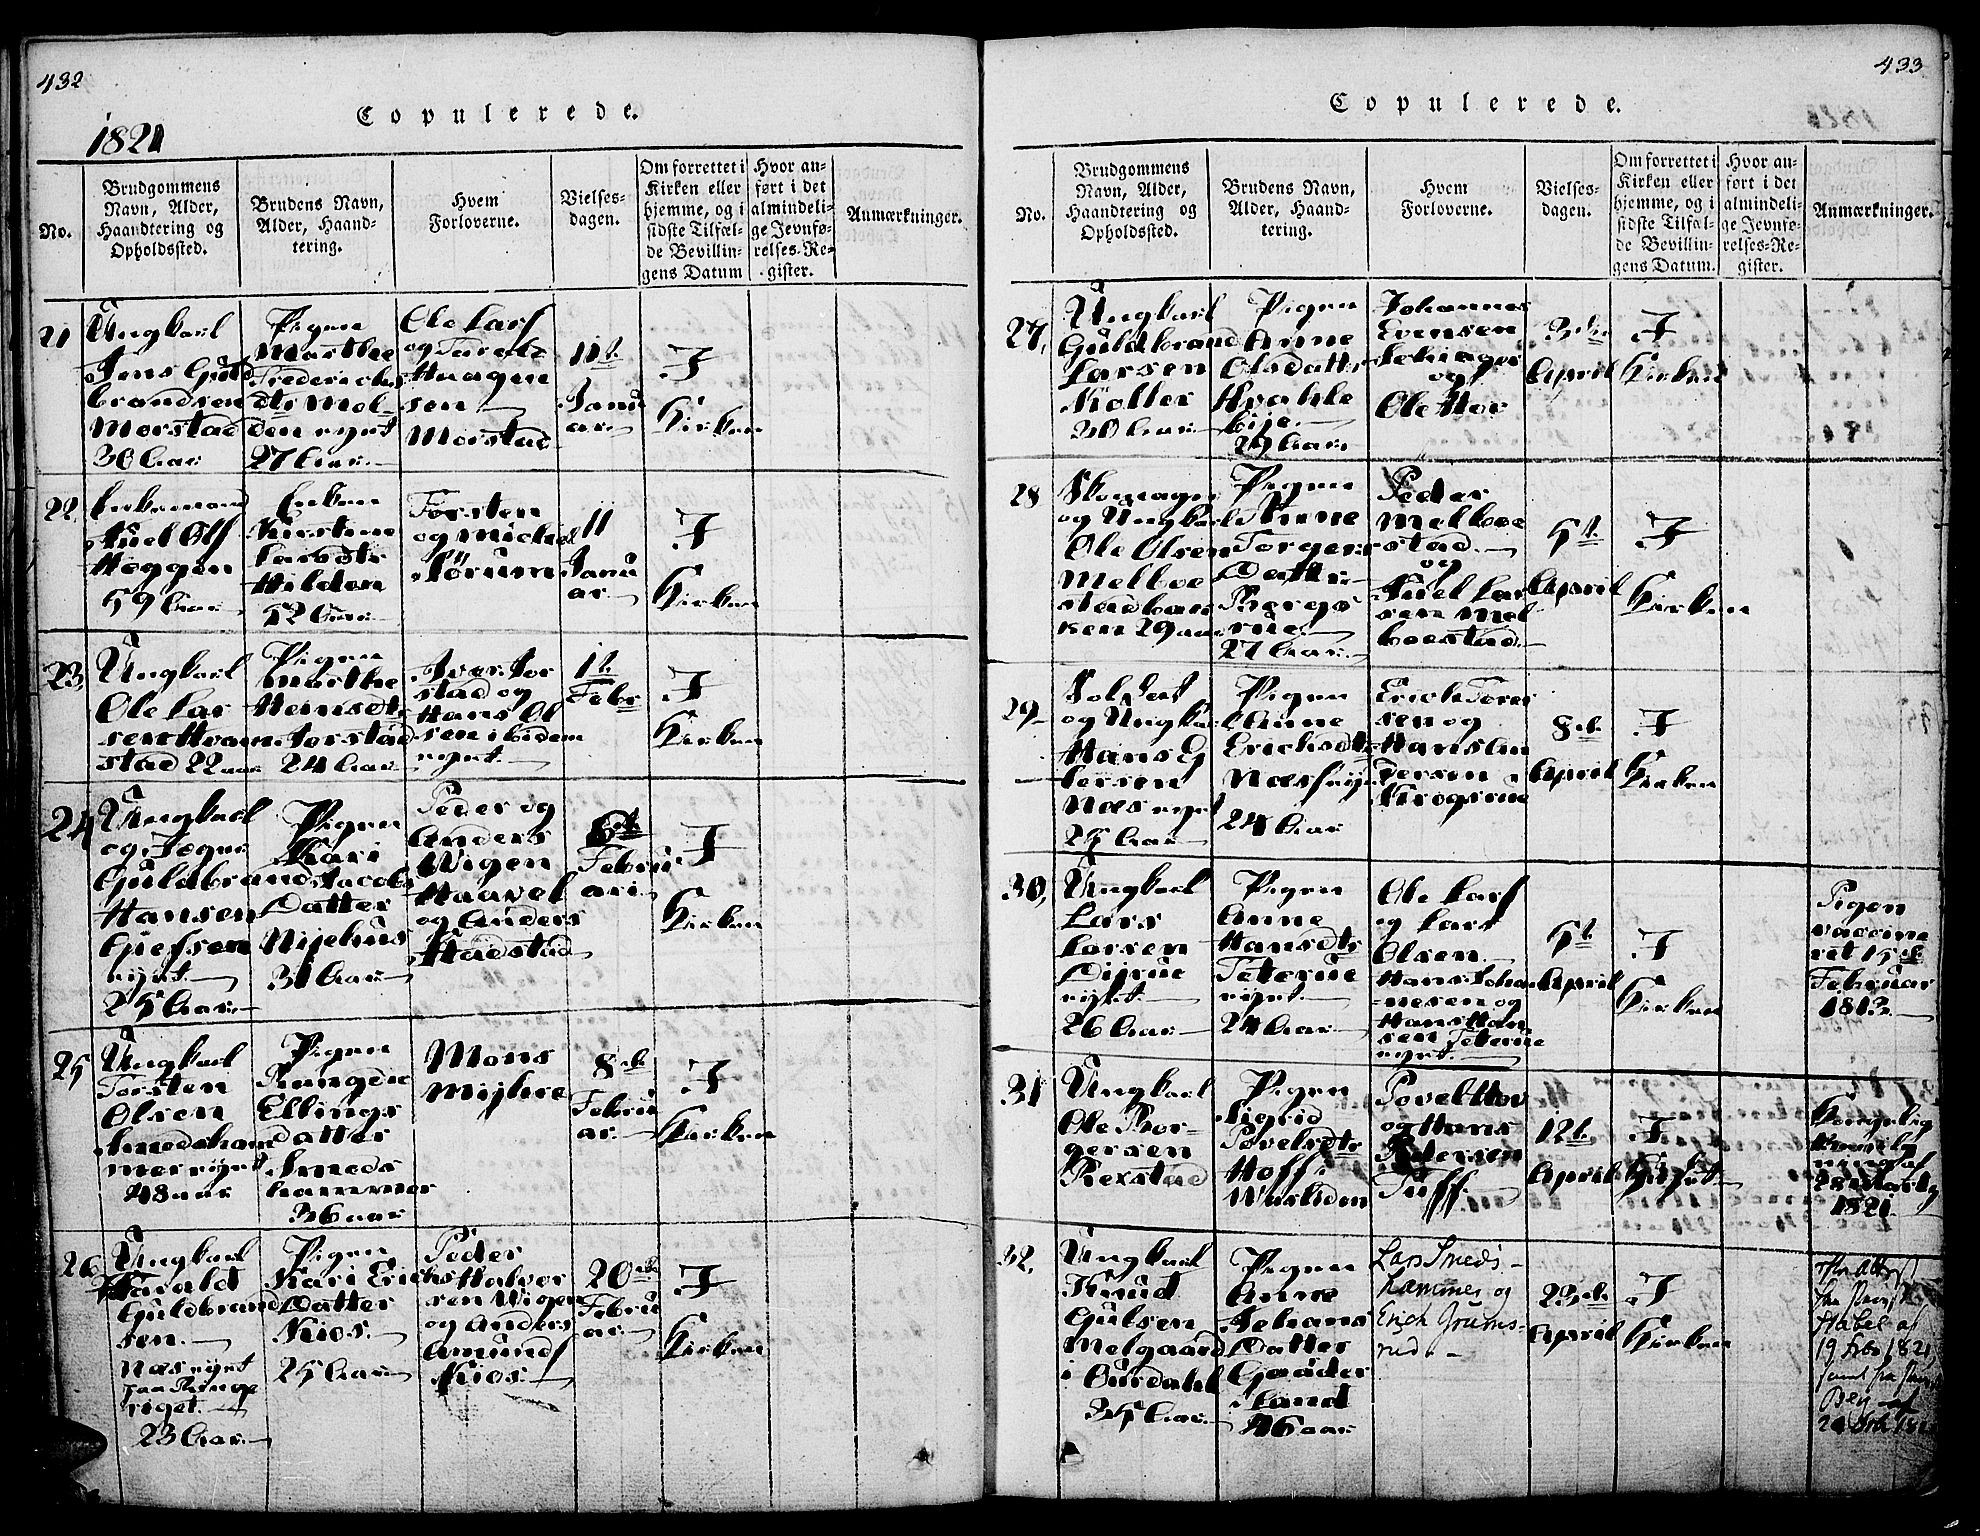 432
Copulerede.
1821
No.
Brudgommens
Navn, Alder,
Haandtering og
Opholdssted.
Brudens Navn,
Alder, Haand-
tering.
Hvem
Forloverne.
Vielses-
dagen.
Om forrettet i
Kirken eller
hjemme, og i
sidste Tilfæl-
de Bevillin-
gens Datum
Hvor an-
ført i det
almindeli-
ge Jevnfø-
relses-Re-
gister.
Anmærkninger.
21
Ungkarl
Jens Guld
brandsen
Morstad
30 Aar
Pigen
Marthe
Fredericks
dtr Mel-
den eyet
27 Aar
Ole Lars
og Tarald
Haagen
sen
Morstad
11t.
Janu
ar
I
Kirken
22
Enkemand
Juel Ols
Heggen
59 Aar
Enken
Kirstine
Larsdtr
Hilden
52 Aar
Torsten
og Michel
Sørum
11
Janu
ar
I
Kirken
23,
Ungkarl
Ole Lar
sen Hvam
stad 22 aar
Pigen
Marthe
Hansdtr
Jorstad
24 Aar
Iver Jor
stad og
Hans Ol
sen ibidem
1t.
Febr
I
Kirken
24
Ungkarl
og
Guldbrand
Hansen
eyet
25 Aar
Pigen
Kari
Jacobs
Datter
Nijehus
31 Aar
Peder og
Anders
Wigen
Haavel
og Anders
Hadstad
6te
Febru
ari
I
Kirken
25
Ungkarl
Torsten
Olsen
Smedsham
mer eyet
48 aar
Pigen
Rangdie
Ellings
datter
Smeds
hammer
36 aar
Mons
Mijhre
8de
Febru
ar
I
Kirken
26
Ungkarl
Harald
Guldbrand
sen
Næs eyet
riget
23 Aar
Pigen
Kari Erichs
Datter
Kios
25 Aar
Peder
Halvor
sen Wigen
og Anders
Amunds
Kios
20de
Febru
ar
I
Kirken
433
Copulerede.
No.
Brudgommens
Navn, Alder,
Haandtering og
Opholdssted.
Brudens Navn,
Alder, Haand-
tering.
Hvem
Forloverne.
Vielses-
dagen.
Om forrettet i
Kirken eller
hjemme, og i
sidste Tilfæl-
de Bevillin-
gens Datum.
Hvor an-
ført i det
almindeli-
ge Jevnfø-
relses-Re-
gister.
Anmærkninger.
27,
Ungkarl
Guldbrand
Larsen
Kolter
30 Aar
Pigen
Anne
Olsdatter
Hvakle
bije
29 Aar
Johannes
Evensen
og
Ole Hov
3die
April
I
Kirken
28
Skomager
og Ungkarl
Ole Olsen
Melboe
stadbak
ken 29 aar
Pigen
Anne
Torgers
Datter
Bergs
rue
27 Aar
Peder
Melboe
stad
og
Juel Lar
sen Mel
boestad
5t.
April
I
Kirken
29
Soldat
og Ungkarl
Hans
Næs eyet
25 Aar
Pigen
Anne
Erichsdtr
Næss eyet
24 Aar
Erich Tores
sen og
Hans An
dersen
Krogsrue
8de
April
I
Kirken
30,
Ungkarl
Lars
Larsen
eyet
26 Aar
Pigen
Anne
Hansdtr
Teterue
eyet
24 Aar
Ole Lars
og Lars
Olsen
Hans Johan
nesen og
Hans Han
sen Teterue
eyet
5t.
April
I
Kirken
Pigen
vaccine
ret 15de
Februar
1813
31
Ungkarl
Ole Bor-
gersen
Rexstad
Pigen
Sigrid
Povelsdtr
Hoff i
Warden
Povel Hov
og Hans
Pedersen
Tuff
12t.
April
I
1821
32.
Ungkarl
Knud
Gulsen
Melgaard
i
Aurdahl
35 Aar
Pigen
Anne
Johans
Datter
Gaader
Sand
46 aar
Lars Smeds-
hammer og
Erich Grims-
rud
23de
April
I
Kirken
Habel af
19 Febr 1821,
samt fra
Berg af